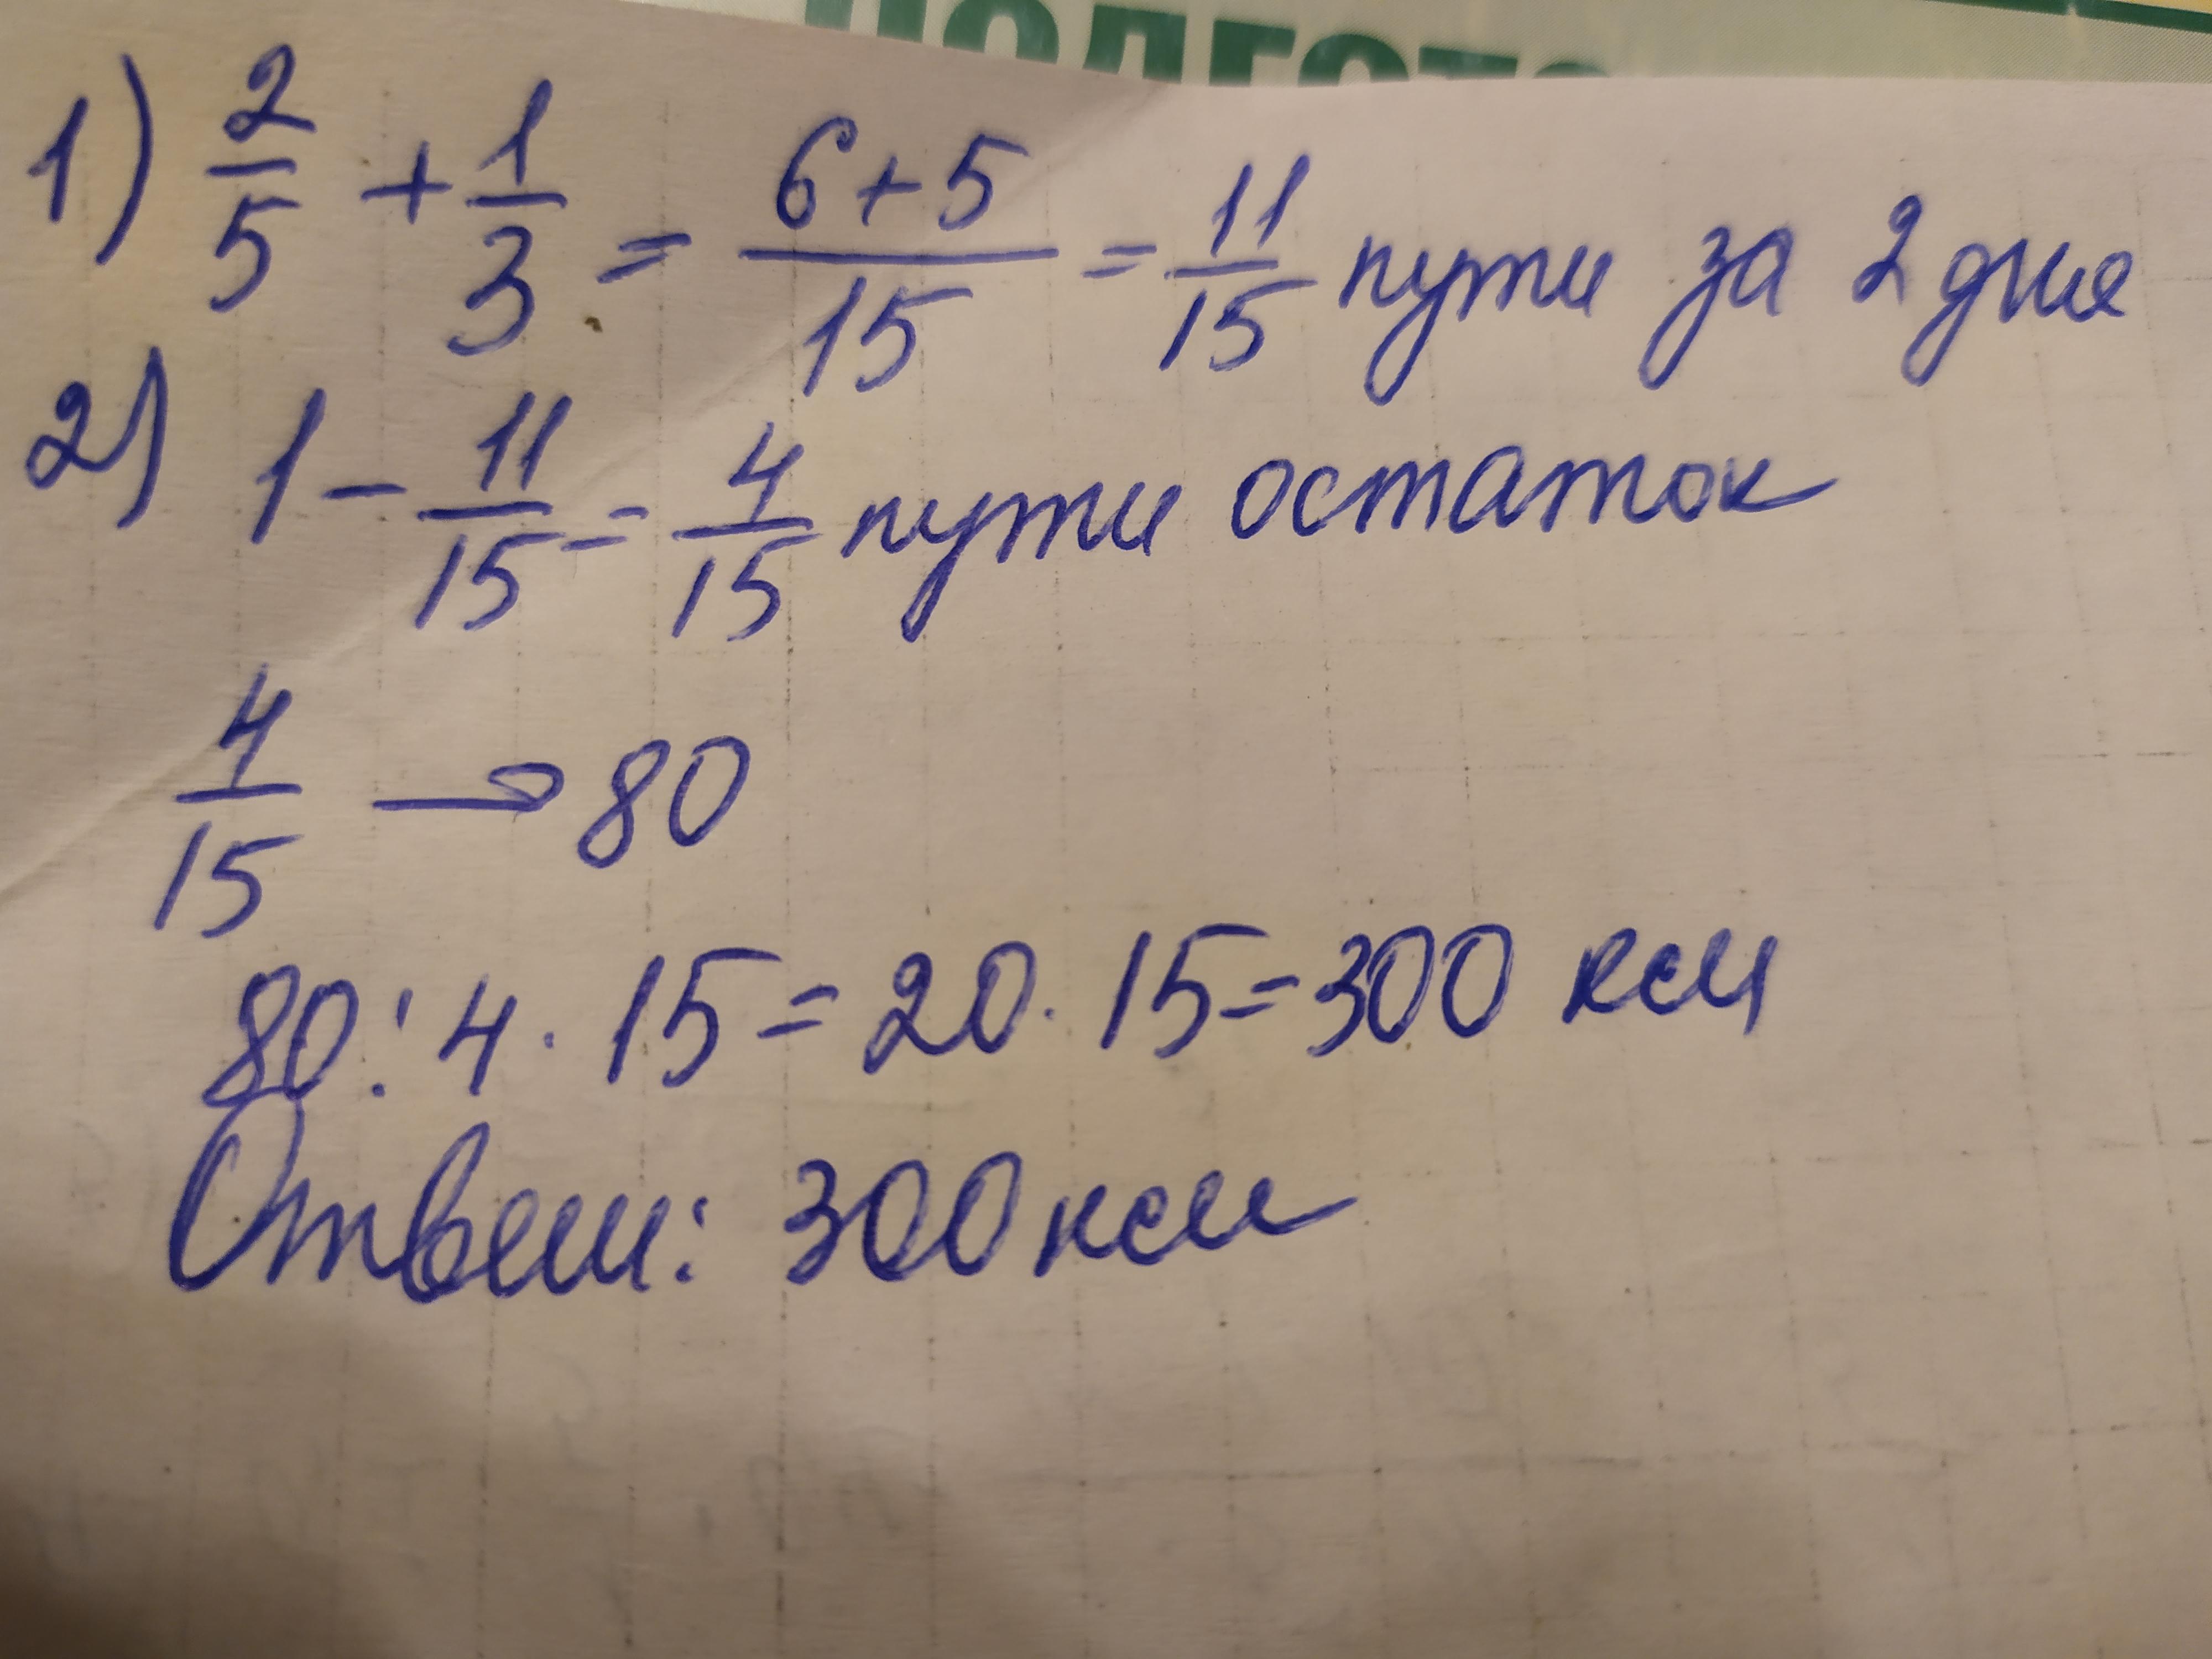 ПОДГОТО
1) 2/5 + 1/3 = (6+5)/15 = 11/15 пути за 2 дня
2) 1 - 11/15 = 4/15 пути остаток
4/15 → 80
80 : 4 · 15 = 20 · 15 = 300 км
Ответ: 300 км